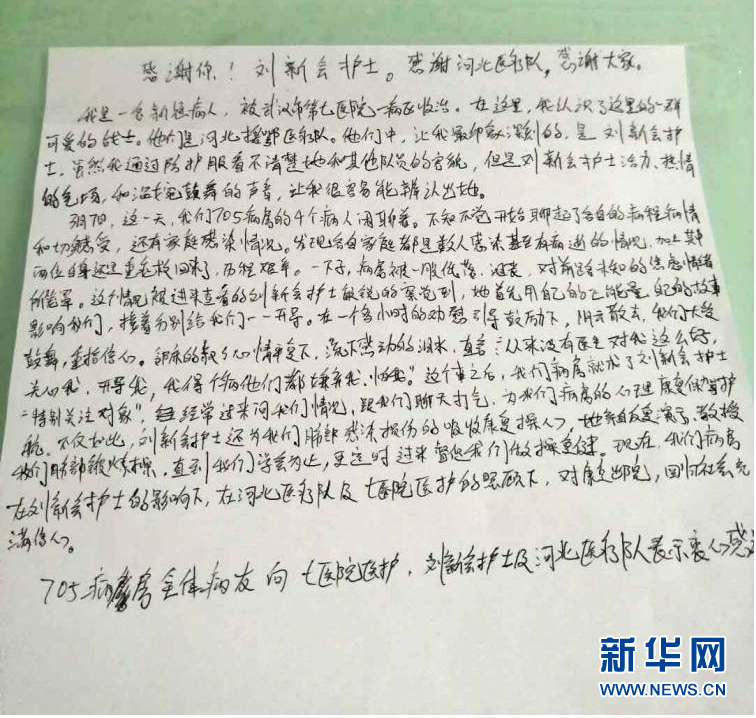 感谢你！刘新会护士。感谢河北医疗队，感谢大家。
我是一名新冠病人，被武汉市第七医院一病区收治。在这里，我认识了这里的一群
可爱的战士。他们是河北援鄂医疗队。他们中，让我最印象深刻的，是刘新会护
士，虽然我通过防护服看不清楚她和其他队员的容貌，但是刘新会护士活力、热情
的气场，和温婉鼓舞的声音，让我很容易能辨认出她。
3月7日，这一天，我们705病房的4个病人闲聊着。不知不觉开始聊起了各自的病程病情
和切身感受，还有家庭感染情况。发现各自家庭都是数人感染甚至有病逝的情况，加上其中
两位自身还是重症抢回来，历程艰辛。一下子，病房被一股低落、沮丧、对前路未知的焦虑情绪
所笼罩。这情况被进来查看的刘新会护士敏锐的察觉到，她首先用自己的正能量、自己的故事
影响我们，接着分别给我们一一开导。在一个多小时的劝慰引导鼓励下，阴云散去，我们大受
鼓舞，重拾信心。邻床的 心情平复下，流下感动的泪水，直言：“从来没有医生对我这么好，
关心我，开导我，我得病他们都嫌弃我、怕我”。这个事之后，我们病房就成了刘新会护士
“特别关注对象”，经常过来问我们情况，跟我们聊天打气，为我们病房的心理康复保驾护
航。不仅如此，刘新会护士还为我们肺部感染损伤的吸收康复操心，她亲自反复演示、教授
我们肺部锻炼操，直到我们学会为止，更定时过来督促我们做操复健。现在，我们病房
在刘新会护士的影响下，在河北医疗队及七医院医护的照顾下，对康复出院，回归社会充
满信心。
705病房全体病友向七医院医护，刘新会护士及河北医疗队表示衷心感
新华网
WWW.NEWS.CN